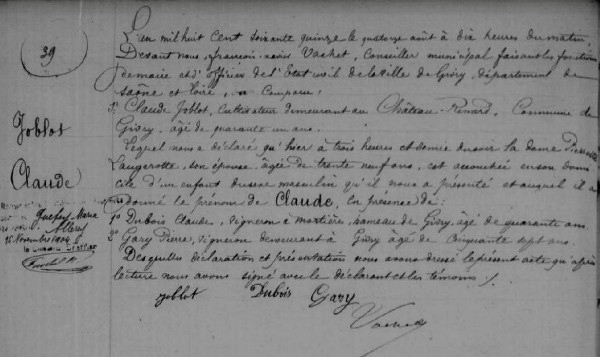 39
Joblot
Claude
Maria
Allerey
L'an mil huit Cent soixante quinze le quatorze août à dix heures du matin
Devant nous François Xavier Vachet, Conseiller municipal faisant les fonctions
de maire et d'officier de l'Etat civil de la ville de Givry, département de
Saône et Loire, a Comparu :
Claude Joblot, Cultivateur demeurant au Château-Renard, Commune de
Givry, âgé de quarante un ans.
Lequel nous a déclaré qu'hier à trois heures et demie du soir la dame Pierrette
Laugerotte, son épouse, âgée de trente neuf ans, est accouchée en son domi
cile d'un enfant du sexe masculin qu'il nous a présenté et auquel il a
donné le prénom de Claude, En présence de :
1º Dubois Claude, Vigneron à mortières, hameau de Givry, âgé de quarante ans
2º Gary Pierre, vigneron demeurant à Givry âgé de Cinquante sept ans.
Desquelles déclaration et présentation nous avons dressé le présent acte qu'après
lecture nous avons signé avec le déclarant et les témoins ./.
Joblot Dubois Gary
Vachet